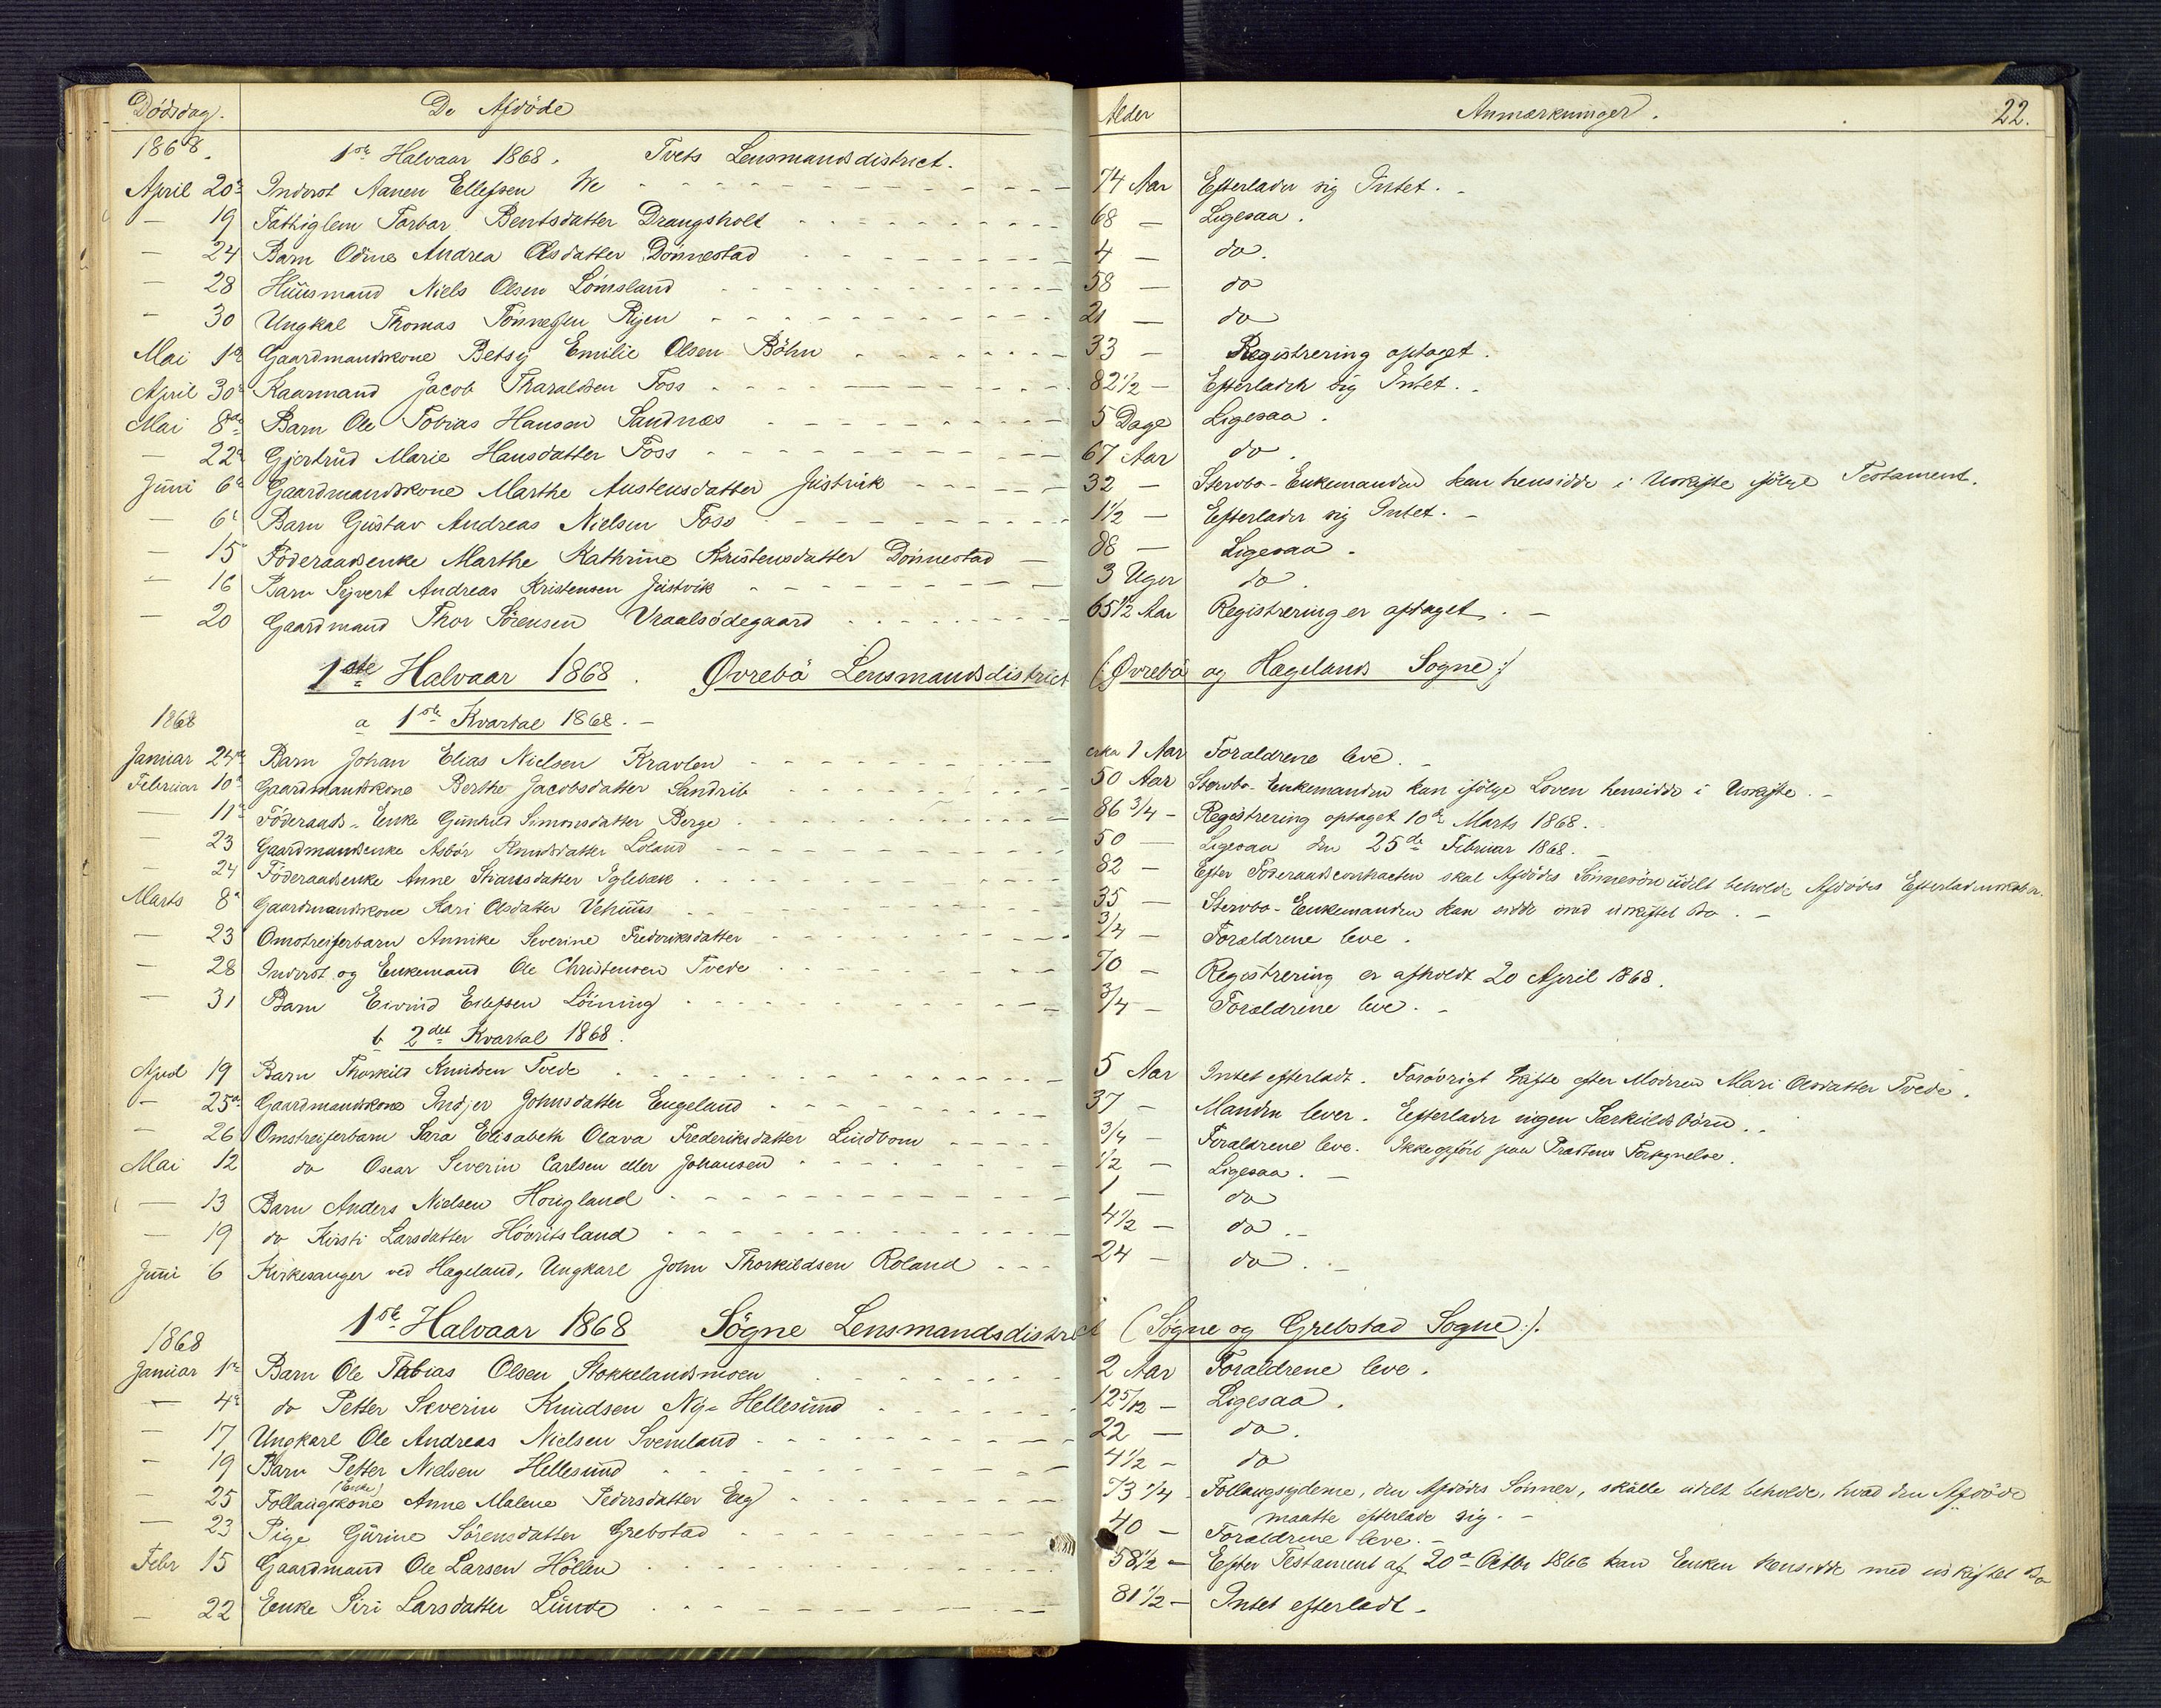 Dödsdag. De Afdöde Alder Anmærkninger. 22.
1868. 1ste Halvaar 1868. Tvets Lensmandsdistrict.
April 20de Inderst Nanen Ellefsen We 74 Aar Efterlader sig Intet.
— 19 Fattiglem Torbor Bentsdatter Drangsholt 68 — Ligesaa.
— 24 Barn Odine Andrea Olsdatter Dönnestad 4 — do.
— 28 Huusmand Niels Olsen Lömsland 58 — do
— 30 Ungkal Thomas Tönnesen Ryen 21 — do
Mai 1ste Gaardmandskone Betsy Emilie Olsen Böhn 33 — Registrering optaget.
April 30de Kaarmand Jacob Tharaldsen Foss 82 1/2 — Efterlader sig Intet.
Mai 8de Barn Ole Tobias Hansen Sandnæs 5 Dage Ligesaa.
— 22de Gjertrud Marie Hansdatter Foss 67 Aar do.
Juni 6te Gaardmandskone Marthe Austensdatter Justvik 32 — Stervbo-Enkemanden kan hensidde i Uskifte ifölge Testament.
— 6te Barn Gustav Andreas Nielsen Foss 1 1/2 — Efterlader sig Intet.
— 15 Föderaadsenke Marthe Kathrine Kristensdatter Dönnestad 88 — Ligesaa.
— 16 Barn Syvert Andreas Kristensen Justvik 3 Uger do.
— 20 Gaardmand Thor Sörensen Vraalsödegaard 65 1/2 Aar Registrering er optaget.
1ste Halvaar 1868. Øvrebö Lensmandsdistrict (: Øvrebö og Hægelands Sogne :)
1868 a 1ste Kvartal 1868.
Januar 24de Barn Johan Elias Nielsen Kravlen cirka 1 Aar Forældrene leve.
Februar 10de Gaardmandskone Berthe Jacobsdatter Sandrib 50 Aar Stervbo-Enkemanden kan ifölge Loven hensidde i Uskifte.
— 11te Föderaads-Enke Gunhild Simonsdatter Berge 86 3/4 — Registrering optaget 10de Marts 1868.
— 23 Gaardmandsenke Asbör Knudsdatter Loland 50 — Ligesaa den 25de Februar 1868.
— 24 Föderaadsenke Anne Iglebæk 82 — Efter Föderaadscontracten skal Afdödes Sönnesön udelt beholde Afdödes
Marts 8de Gaardmandskone Kari Olsdatter Vehuus 35 — Stervbo-Enkemanden kan sidde med uskiftet Bo.
— 23 Omstreiferbarn Annike Severine Frederiksdatter 3/4 — Forældrene leve.
— 28 Inderst og Enkemand Ole Christensen Tvede 70 — Registrering er afholdt 20 April 1868.
— 31 Barn Eivind Ellefsen Löining 3/4 — Forældrene leve.
b 2det Kvartal 1868.
April 19 Barn Thorkild Knudsen Tvede 5 Aar Intet efterladt. Forövrigt Skifte efter Moderen Mari Olsdatter Tvede.
— 25de Gaardmandskone Indjer Johnsdatter Engeland 37 — Manden lever. Efterlader ingen Særkuldsbörn.
— 26 Omstreiferbarn Sara Elisabeth Olava Frederiksdatter Lindbom 3/4 — Forældrene leve. Ikke opfört paa Præstens Fortegnelse.
Mai 12 do Oscar Severin Carlsen eller Johansen 1/2 — Ligesaa.
— 13 Barn Anders Nielsen Hougland 1 — do
— 19 do Kirsti Larsdatter Hövritsland 4 1/2 — do
Juni 6 Kirkesanger ved Hægeland, Ungkarl John Thorkildsen Roland 24 — do.
1ste Halvaar 1868 Sögne Lensmandsdistrict (: Sögne og Grebstad Sogne :).
1868
Januar 1ste Barn Ole Tobias Olsen Stokkelandsmoen 2 Aar Forældrene leve.
— 4de do Petter Severin Knudsen Ny-Hellesund 12 5/12 — Ligesaa.
— 17 Ungkarl Ole Andreas Nielsen Svenland 22 — do.
— 19 Barn Petter Nielsen Hellesund 4 1/2 — do
— 25 Follaugskone (Enke) Anne Malene Pedersdatter Eeg 73 1/4 Follaugsyderne, den Afdödes Sönner, skulle udelt beholde, hvad den Afdöde
maatte efterlade sig.
— 23 Pige Gurine Sörensdatter Grebstad 40 — Forældrene leve.
Febr 15 Gaardmand Ole Larsen Höllen 58 1/2 — Efter Testament af 20de Octbr 1866 kan Enken hensidde med uskiftet Bo
— 22 Enke Siri Larsdatter Lunde 81 1/2 — Intet efterladt.